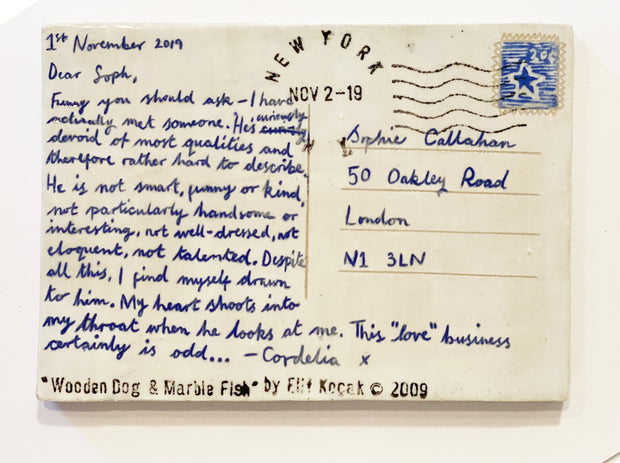 1st November 2019
Dear Soph,
Funny you should ask – I have
actually met someone. He's curiously
devoid of most qualities and
therefore rather hard to describe.
He is not smart, funny or kind,
not particularly handsome or
interesting, not well-dressed, not
eloquent, not talented. Despite
all this, I find myself drawn
to him. My heart shoots into
my throat when he looks at me. This "love" business
certainly is odd... – Cordelia x
NEW YORK
NOV 2-19
20c
Sophie Callahan
50 Oakley Road
London
N1 3LN
"Wooden Dog & Marble Fish" by Elif Koçak © 2009